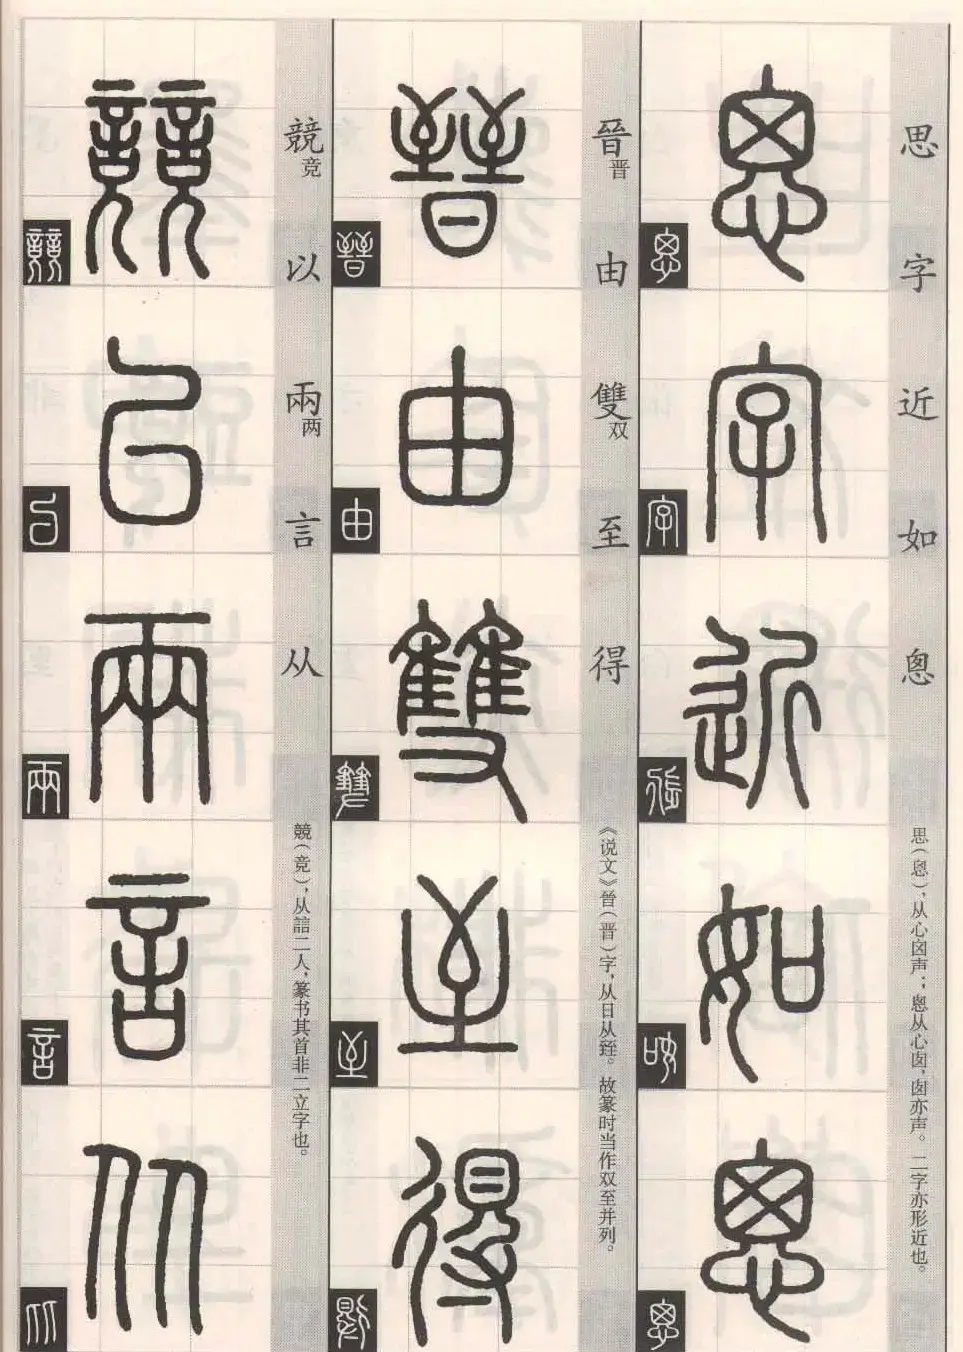 思字近如悤
思（恖），从心囟声；悤从心囱，囱亦声。二字亦形近也。
晉晋由雙双至得
《说文》晉（晋）字，从日从臸。故篆时当作双至并列。
競竞以兩两言从
競（竞），从誩二人，篆书其首非二立字也。